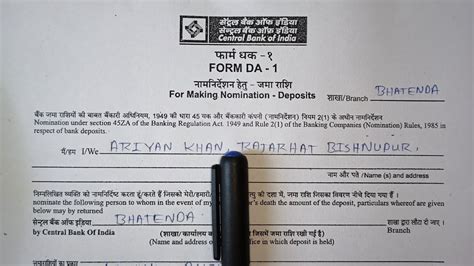 सेन्ट्रल बैंक ऑफ इंडिया
सेन्ट्रल बैंक ऑफ इंडिया
Central Bank of India
फार्म धक - १
FORM DA - 1
नामनिर्देशन हेतु - जमा राशि
For Making Nomination - Deposits
शाखा/Branch BHATENDA
बैंक जमा राशियों की बाबत बैंककारी अधिनियम, 1949 की धारा 45 यक और बैंककारी कंपनी (नामनिर्देशन) नियम 2(1) के अधीन नामनिर्देशन
Nomination under section 45ZA of the Banking Regulation Act. 1949 and Rule 2(1) of the Banking Companies (Nomination) Rules, 1985 in
respect of bank deposits.
मैं/हम I/We ARIYAN KHAN, RAJARHAT BISHNUPUR,
नाम और पते (Name (s) and address)
निम्नलिखित व्यक्ति को नामनिर्दिष्ट
nominate the following person to whom in the event of my death the amount of deposit, particulars whereof are given
below may be returned
सेन्ट्रल बैंक ऑफ इंडिया BHATENDA (शाखा द्वारा लौटा दी जाए)
by Central Bank of India
(शाखा/कार्यालय जिसमें जमा राशि रखी गई है)
(Name and address of office in which deposit is held)